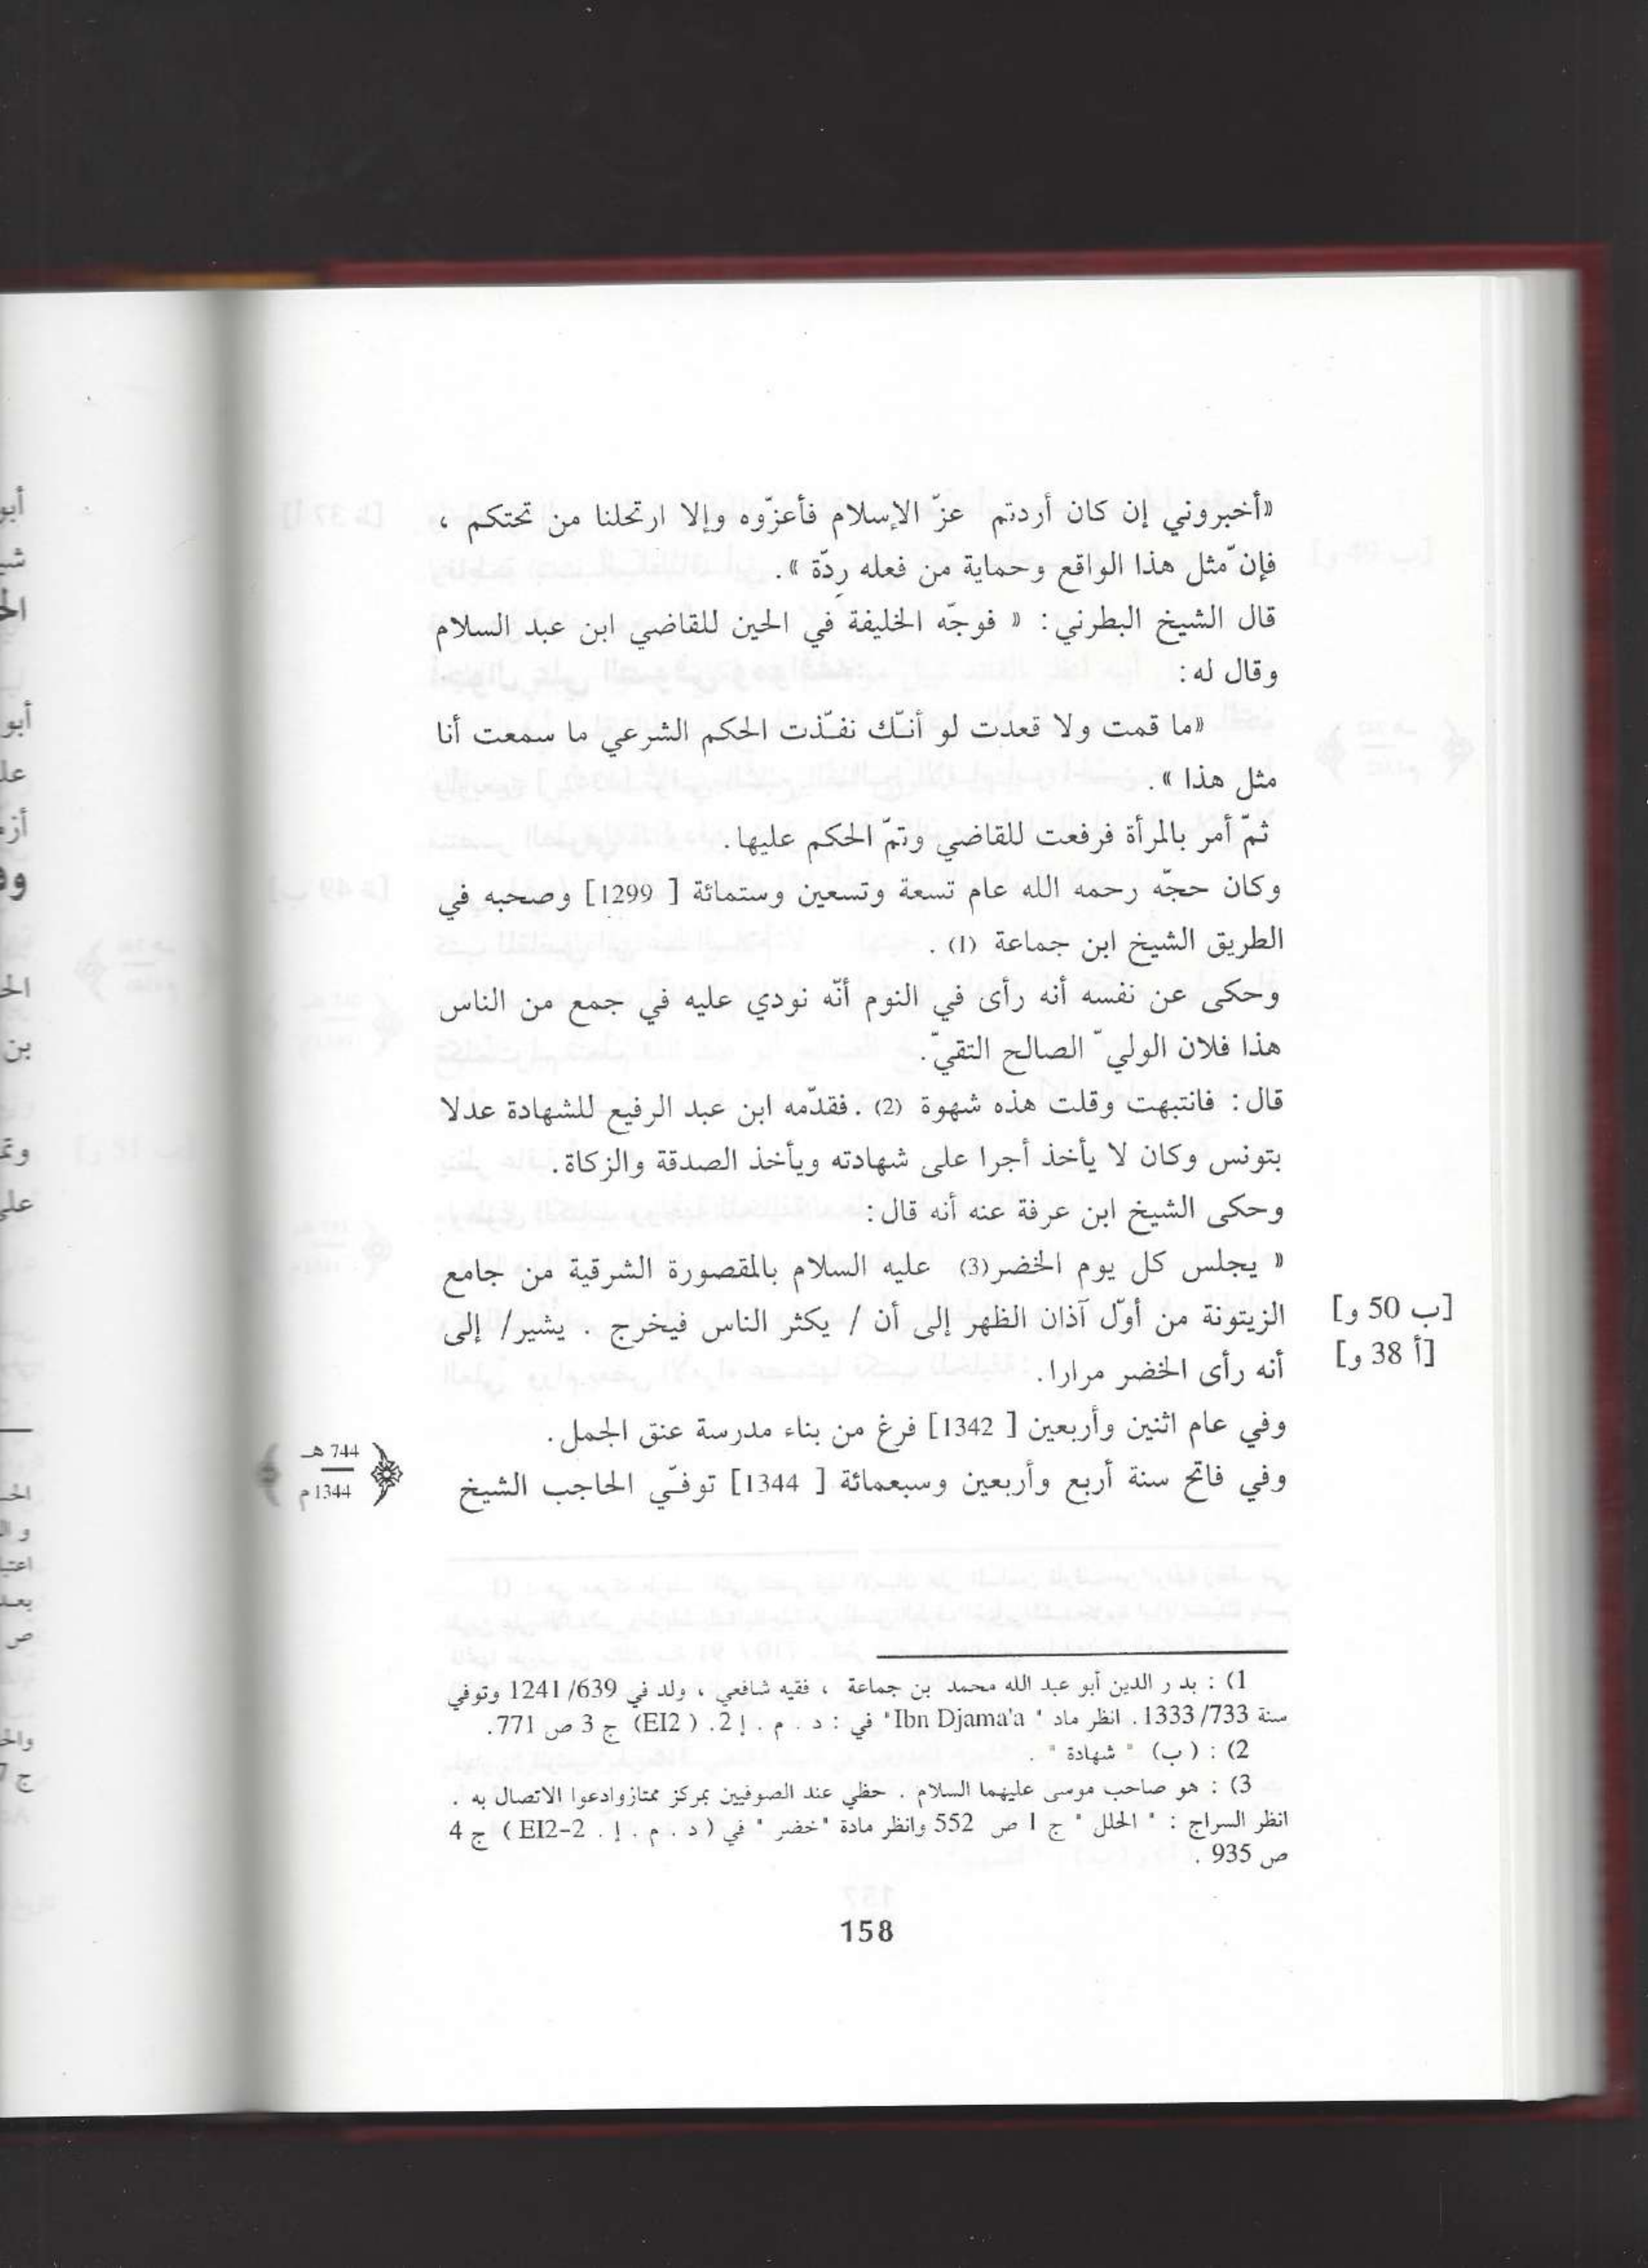 «أخبروني إن كان أردتم عزّ الإسلام فأعزّوه وإلا ارتحلنا من تحتكم ،
فإنّ مثل هذا الواقع وحماية من فعله رِدّة ».
قال الشيخ البطرني : « فوجّه الخليفة في الحين للقاضي ابن عبد السلام
وقال له :
«ما قمت ولا قعدت لو أنّك نفّذت الحكم الشرعي ما سمعت أنا
مثل هذا ».
ثمّ أمر بالمرأة فرفعت للقاضي وتمّ الحكم عليها .
وكان حجّه رحمه الله عام تسعة وتسعين وستمائة [ 1299] وصحبه في
الطريق الشيخ ابن جماعة (1) .
وحكى عن نفسه أنه رأى في النوم أنّه نودي عليه في جمع من الناس
هذا فلان الوليّ الصالح التقيّ.
قال : فانتبهت وقلت هذه شهوة (2) . فقدّمه ابن عبد الرفيع للشهادة عدلا
بتونس وكان لا يأخذ أجرا على شهادته ويأخذ الصدقة والزكاة .
وحكى الشيخ ابن عرفة عنه أنه قال :
« يجلس كل يوم الخضر(3) عليه السلام بالمقصورة الشرقية من جامع
الزيتونة من أوّل آذان الظهر إلى أن / يكثر الناس فيخرج . يشير/ إلى
[ب 50 و]
أنه رأى الخضر مرارا .
[أ 38 و]
وفي عام اثنين وأربعين [ 1342] فرغ من بناء مدرسة عنق الجمل .
وفي فاتح سنة أربع وأربعين وسبعمائة [ 1344 ] توفّي الحاجب الشيخ
744 هـ
1344 م
1) : بد ر الدين أبو عبد الله محمد بن جماعة ، فقيه شافعي ، ولد في 639/ 1241 وتوفي
سنة 733/ 1333 . انظر ماد " Ibn Djama'a" في : د . م . إ 2. ( EI2) ج 3 ص 771.
2) : ( ب) " شهادة " .
3) : هو صاحب موسى عليهما السلام . حظي عند الصوفيين بمركز ممتازوادعوا الاتصال به .
انظر السراج : " الحلل " ج 1 ص 552 وانظر مادة "خضر " في ( د . م . إ . EI2-2 ) ج 4
ص 935 .
158